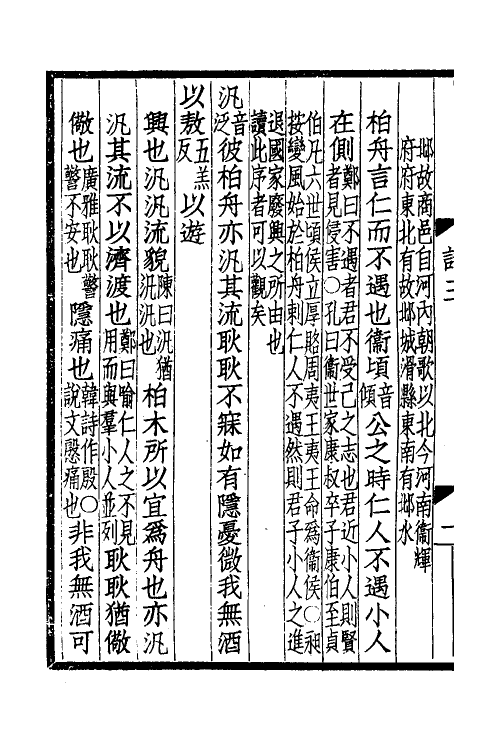 邶故商邑自河內朝歌以北今河南衞輝
府府東北有故邶城滑縣東南有邶水
柏舟言仁而不遇也衞頃音傾公之時仁人不遇小人
在側鄭曰不遇者君不受己之志也君近小人則賢
者見侵害〇孔曰衞世家康叔卒子康伯至貞
伯凡六世頃侯立厚賂周夷王夷王命爲衞侯〇昶
按變風始於柏舟刺仁人不遇然則君子小人之進
退國家廢興之所由也
讀此序者可以觀矣
汎音泛彼柏舟亦汎其流耿耿不寐如有隱憂微我無酒
以敖五羔反以遊
興也汎汎流貌陳曰汎猶汎汎也柏木所以宜爲舟也亦汎
汎其流不以濟渡也鄭曰喻仁人之不見用而與羣小人並列耿耿猶儆
儆也廣雅耿耿警警不安也隱痛也韓詩作殷〇說文慇痛也非我無酒可